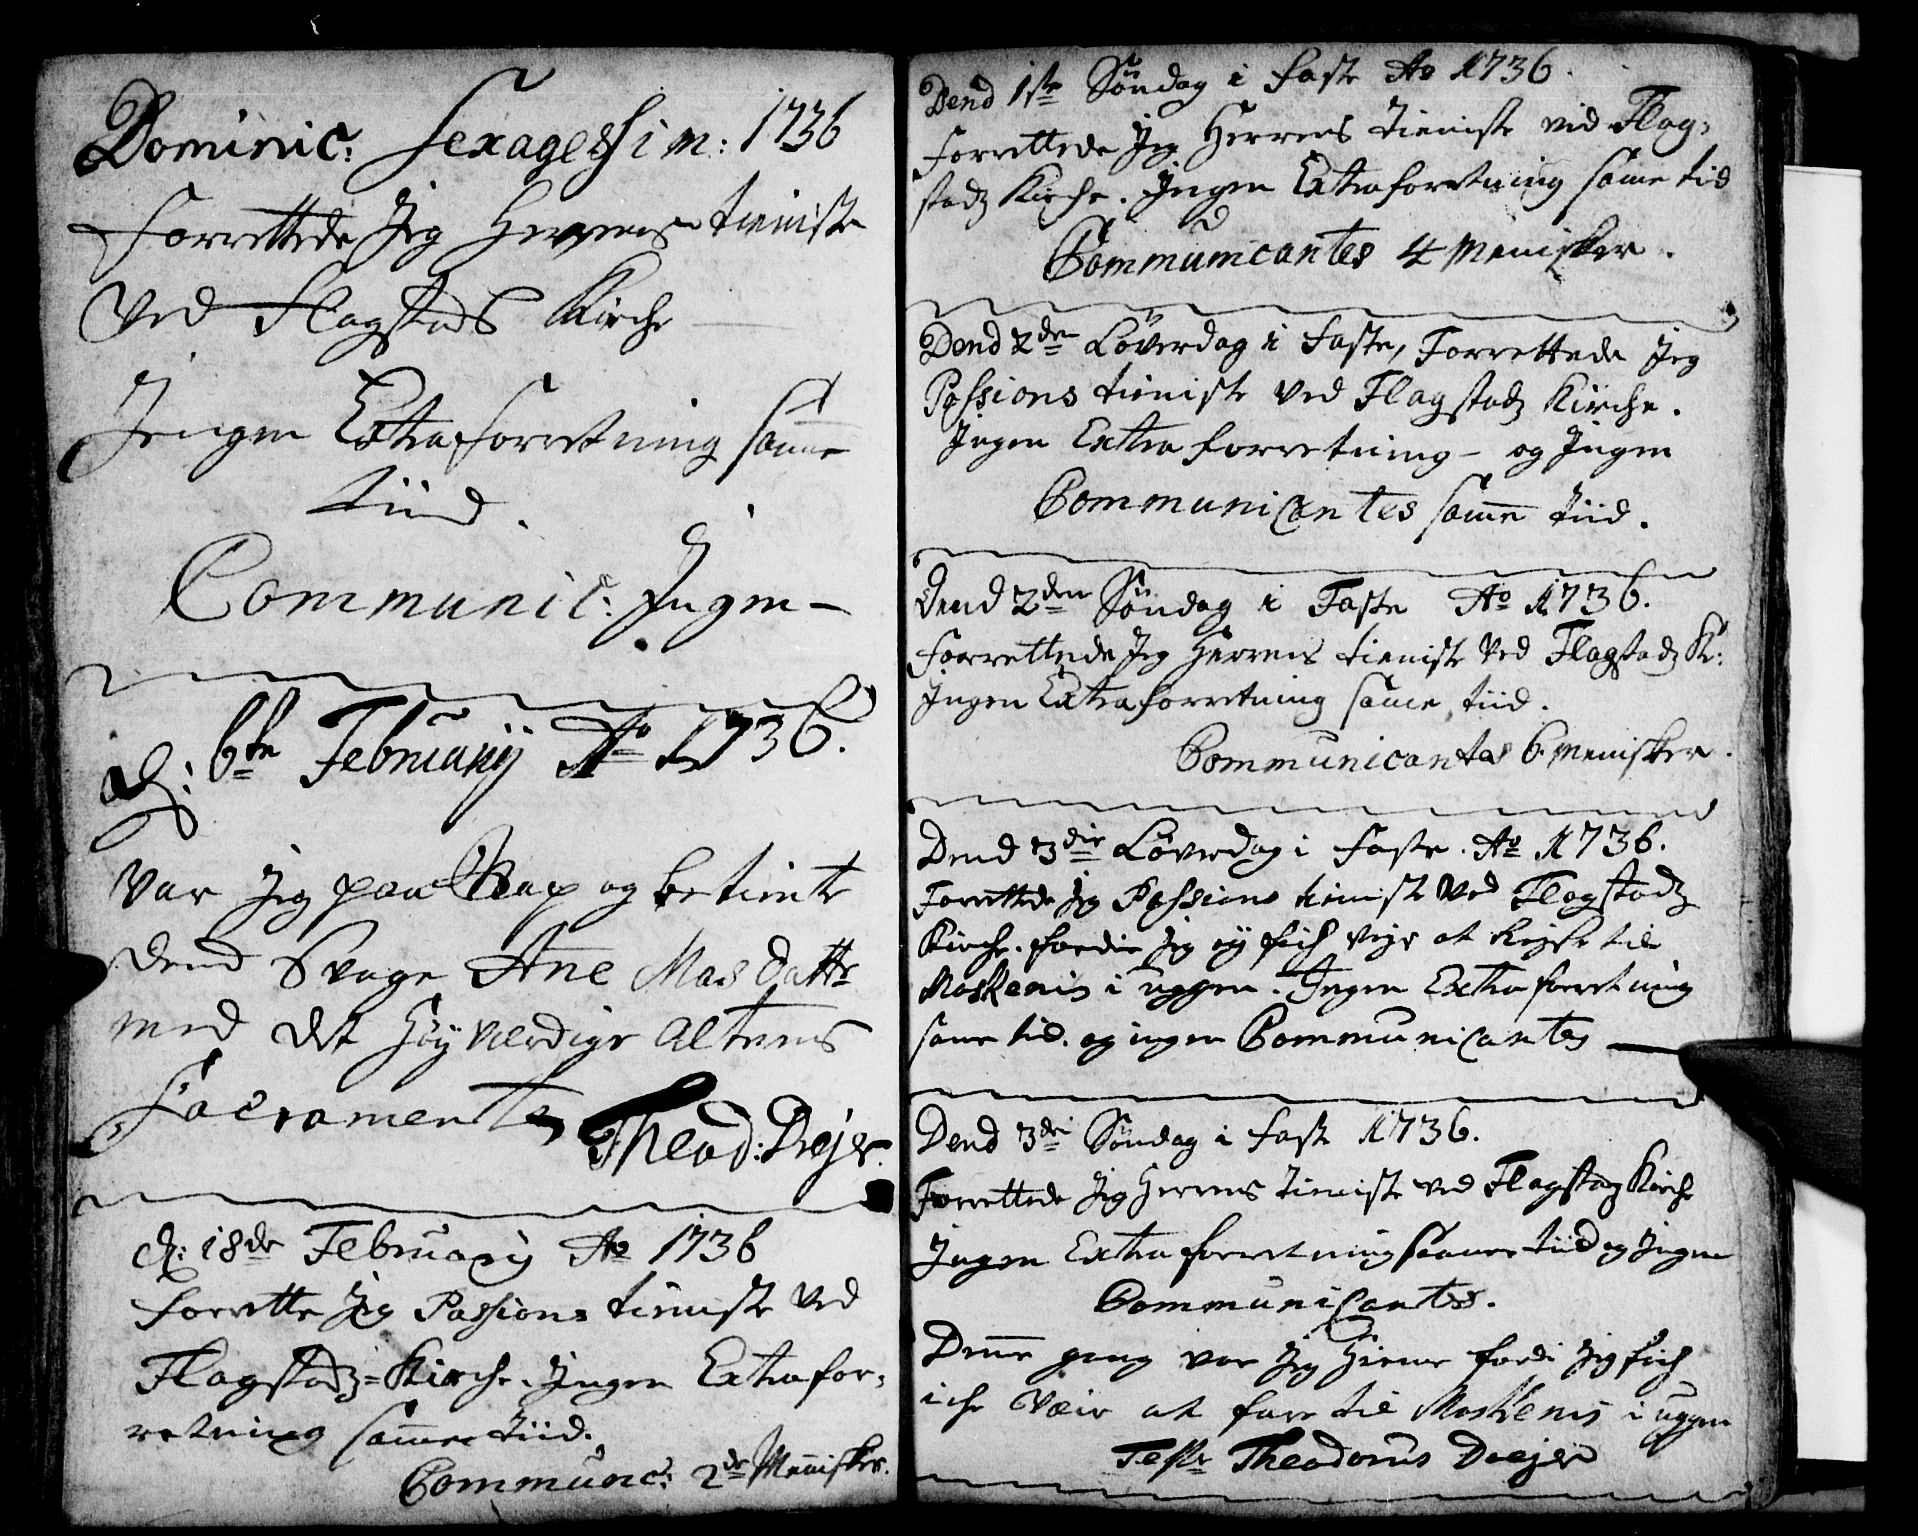 Dominic: Sexagessim: 1736
Forrettede Jeg Herrens tieniste
Ved Flagstads Kirche
Ingen Extraforretning samme
tiid.
Communic: Ingen –
d: 6te Februarij Ao 1736.
Var Jeg paa og betiente
dend Svage Ane Mas datter
med det høyværdige Altrens
Sacramente Theod: Drejer.
d: 18de Februarij Ao 1736
forrette Jeg Passions tieniste ved
Flagstadz-Kirche. Ingen Extrafor-
retning samme tiid.
Communc: 2de Mennisker.
Dend 1ste Søndag i faste Ao 1736.
forrettede Jeg Herrens tieniste ved Flag-
stadz Kirche. Ingen Extraforretning same tid
Communicantes 4 Menisker.
Dend 2den Løverdag i faste, Forrettede Jeg
Passions tieniste ved Flagstadz Kirche.
Ingen Extra forretning – og Ingen
Communicantes same tiid.
Dend 2den Søndag i Faste Ao 1736.
forrettede Jeg Herrens tieniste Ved Flagstadz K:
Ingen Extraforretning same tiid.
Communicantes 6 Menisker.
Dend 3die Løverdag i faste. Ao 1736.
Forrettede Jeg Passions tieniste ved Flagstadz
Kirche. fordie Jeg ey fich at Rejse til
Moskenis i uggen. Ingen Extra forretning
same tid. og ingen Communicantes
Dend 3die Søndag i fast 1736.
Forrettede Jeg Herrens tieniste ved Flagstadz Kirche
Ingen Extra forretning samme tiid og Ingen
Communicantes.
Denne gang var Jeg hieme fordi Jeg fich
iche Væir at fare til Moskenis i uggen
Teste Theodorus Drejer